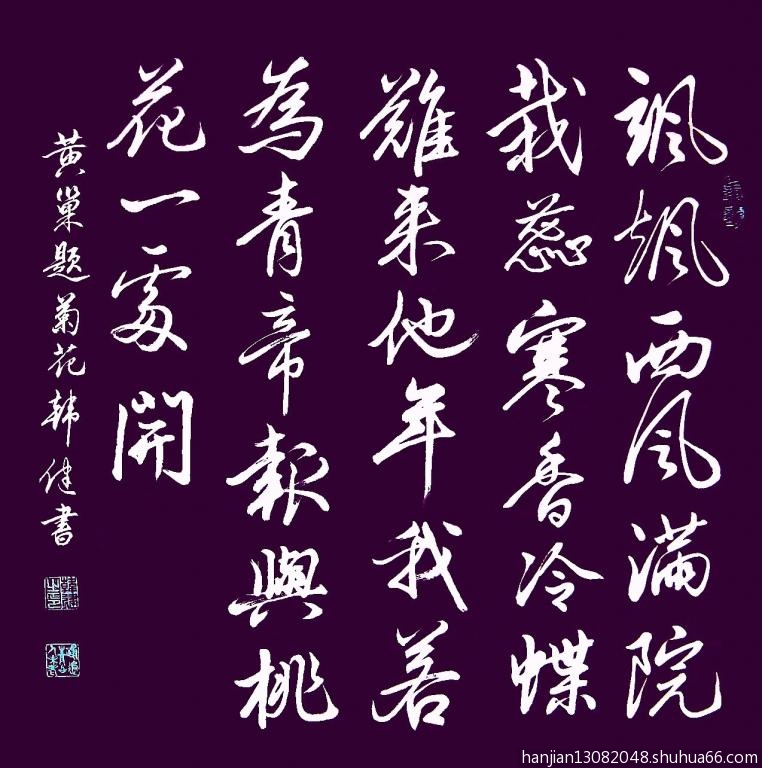 飒飒西风满院
栽蕊寒香冷蝶
難来他年我若
為青帝報與桃
花一處開
黄巢题菊花韩健書
hanjian13082048.shuhua66.com